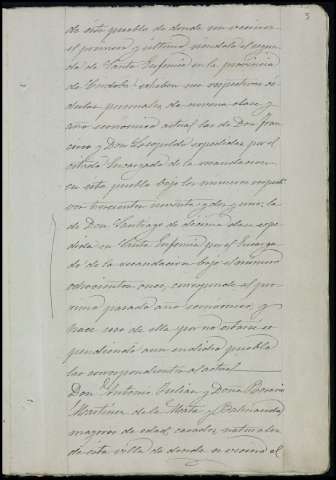 3
de este pueblo de donde son vecinos
el primero y ultimo, siendolo el segun
do de Santa Eufemia en la provincia
de Cordoba: exhiben sus respectivas cé
dulas personales de novena clase y
año económico actual, las de Don Fran
cisco y Don Leopoldo expedidas por el
citado Encargado de la recaudacion
en este pueblo bajo los numeros respecti
vos trescientos noventa y dos y uno; la
de Don Santiago de decima clase expe
dida en Santa Eufemia por el Encarga
do de la recaudacion bajo el numero
ochocientos once, corresponde al pro
ximo pasado año económico, y
hace uso de ella por no estarse ex
pendiendo aun en dicho pueblo
las correspondientes al actual.
Don Antonio Julian y Doña Rosario
Martinez de la Mata y
mayores de edad, casados, naturales
de esta villa de donde es vecino el